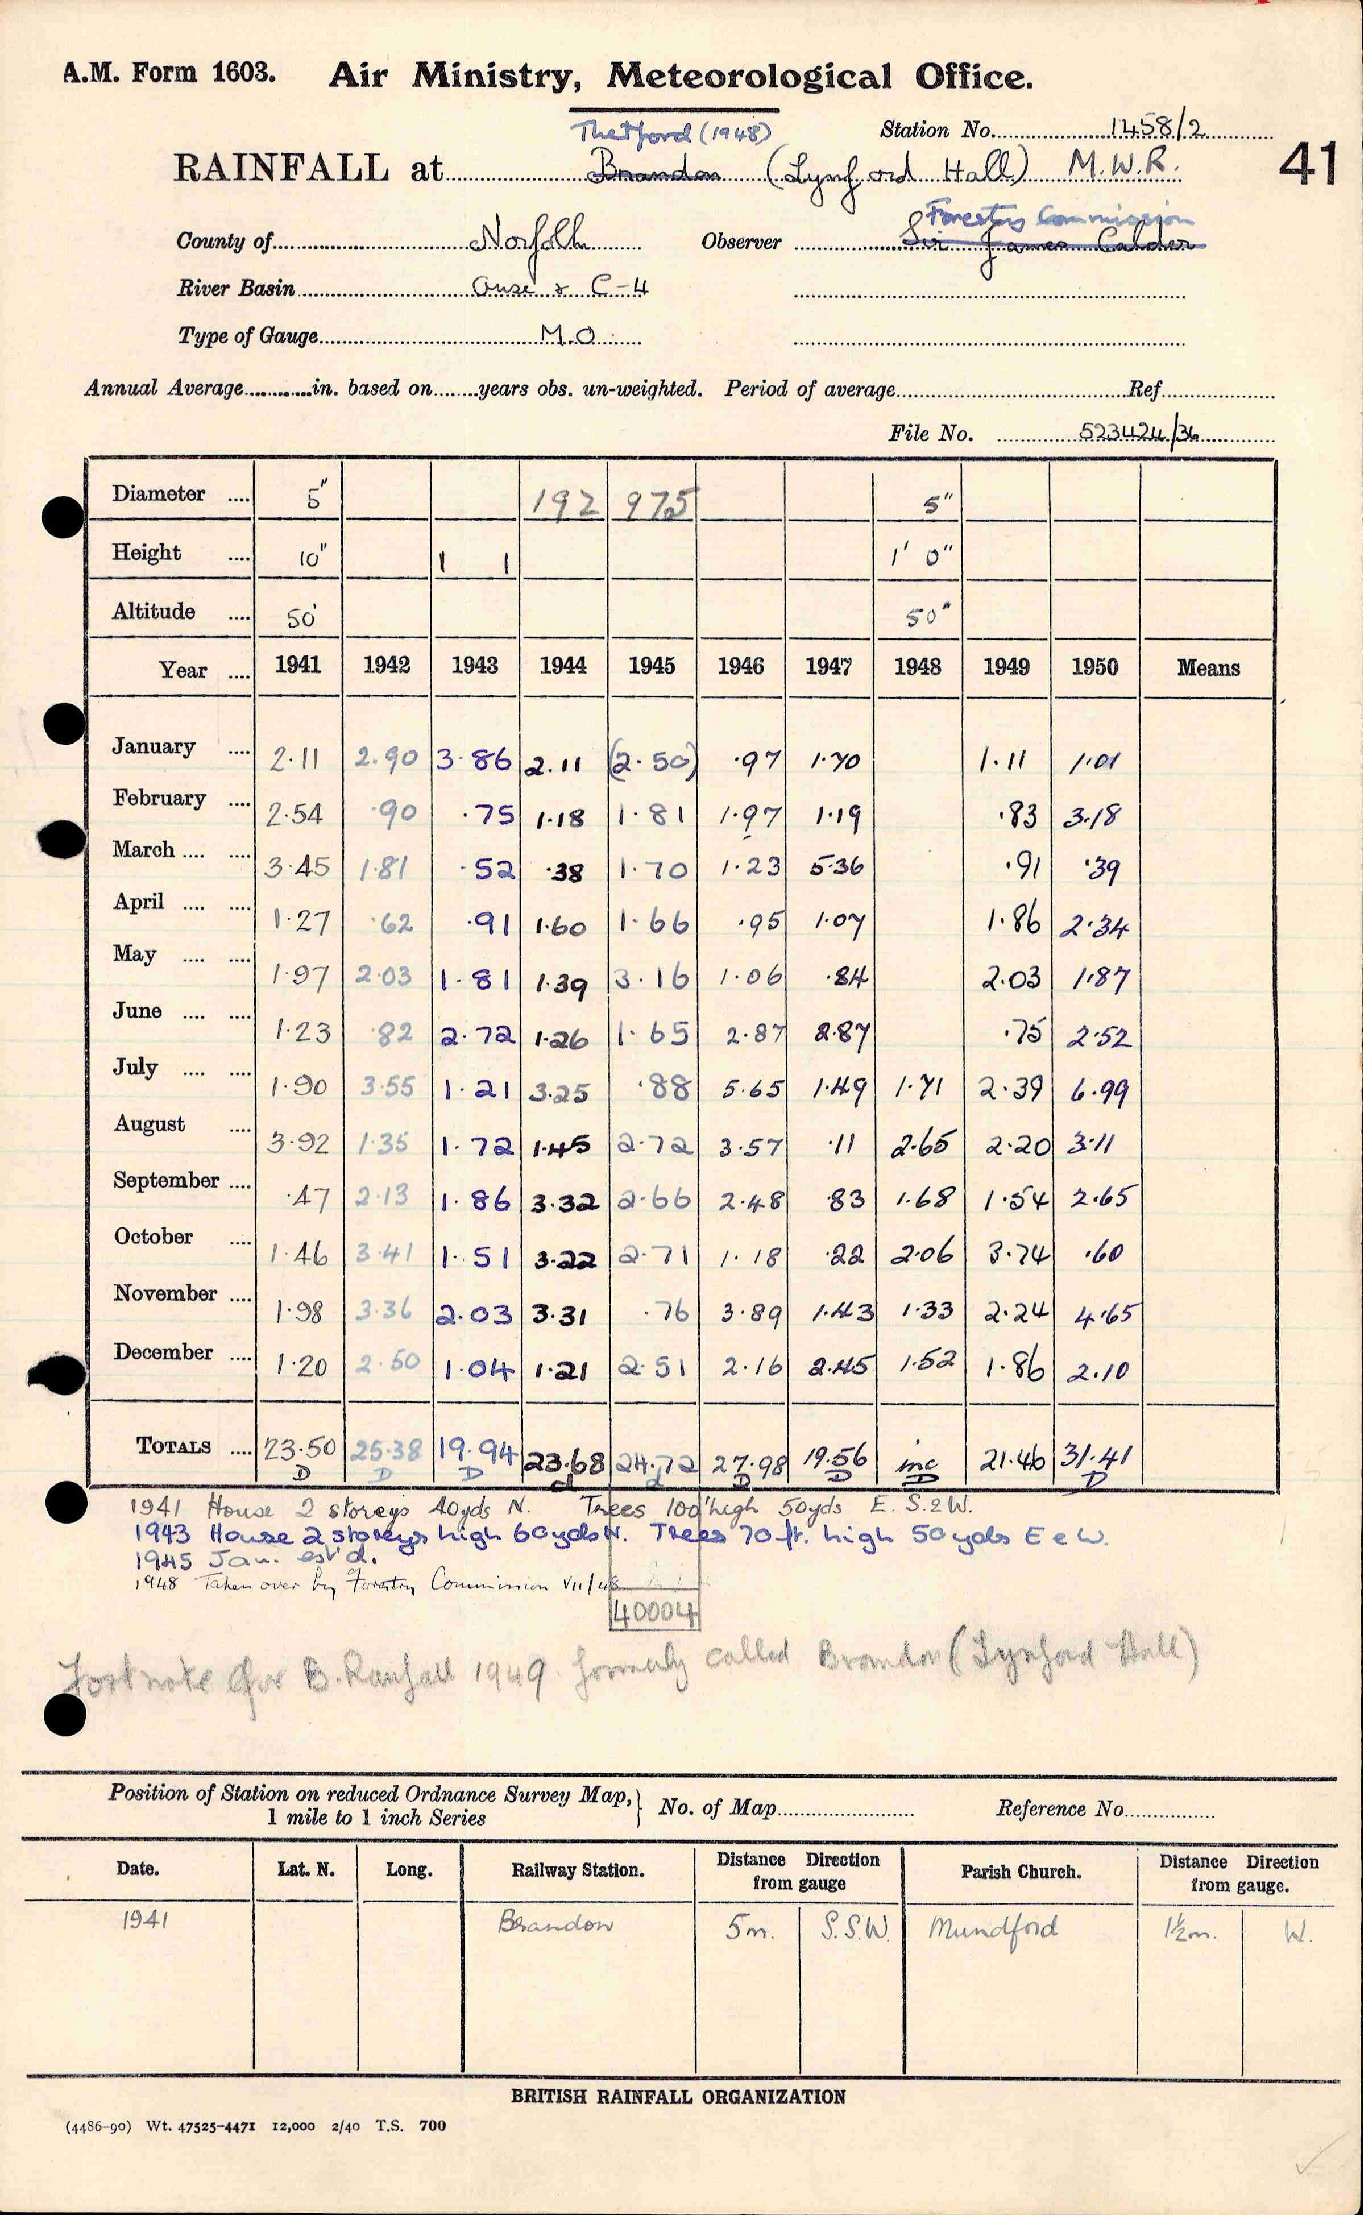 A.M. Form 1603. Air Ministry, Meteorological Office.
Thetford (1948) Station No. 1458/2
RAINFALL at Brandon (Lynford Hall) M.W.R. 41
Forestry Commission
County of Norfolk Observer Sir James Calder
River Basin Ouse & C-4
Type of Gauge M.O.
Annual Average in. based on years obs. un-weighted. Period of average Ref
File No. 523424/36
Diameter .... 5" 192 975 5"
Height .... 10" 1 1 1' 0"
Altitude .... 50' 50"
Year .... 1941 1942 1943 1944 1945 1946 1947 1948 1949 1950 Means
January .... 2.11 2.90 3.86 2.11 (2.50) .97 1.70 1.11 1.01
February .... 2.54 .90 .75 1.18 1.81 1.97 1.19 .83 3.18
March .... .... 3.45 1.81 .52 .38 1.70 1.23 5.36 .91 .39
April .... .... 1.27 .62 .91 1.60 1.66 .95 1.07 1.86 2.34
May .... .... 1.97 2.03 1.81 1.39 3.16 1.06 .84 2.03 1.87
June .... .... 1.23 .82 2.72 1.26 1.65 2.87 2.87 .75 2.52
July .... .... 1.90 3.55 1.21 3.25 .88 5.65 1.49 1.71 2.39 6.99
August .... 3.92 1.35 1.72 1.45 2.72 3.57 .11 2.65 2.20 3.11
September .... .47 2.13 1.86 3.32 2.66 2.48 .83 1.68 1.54 2.65
October .... 1.46 3.41 1.51 3.22 2.71 1.18 .22 2.06 3.74 .60
November .... 1.98 3.36 2.03 3.31 .76 3.89 1.43 1.33 2.24 4.65
December .... 1.20 2.50 1.04 1.21 2.51 2.16 2.45 1.52 1.86 2.10
TOTALS .... 23.50 25.38 19.94 23.68 24.72 27.98 19.56 inc 21.46 31.41
D D D d d D D D D
1941 House 2 storeys 40yds N. Trees 100' high 50yds E. S. & W.
1943 House 2 storeys high 60yds N. Trees 70 ft. high 50 yds E & W.
1945 Jan. est'd.
1948 Taken over by Forestry Commission VII/48
40004
Footnote for B. Rainfall 1949 formerly called Brandon (Lynford Hall)
Position of Station on reduced Ordnance Survey Map, 1 mile to 1 inch Series } No. of Map Reference No.
Date. Lat. N. Long. Railway Station. Distance Direction from gauge Parish Church. Distance Direction from gauge.
1941 Brandon 5m. S.S.W. Mundford 1½m. W.
BRITISH RAINFALL ORGANIZATION
(4486-90) Wt. 47525-4471 12,000 2/40 T.S. 700